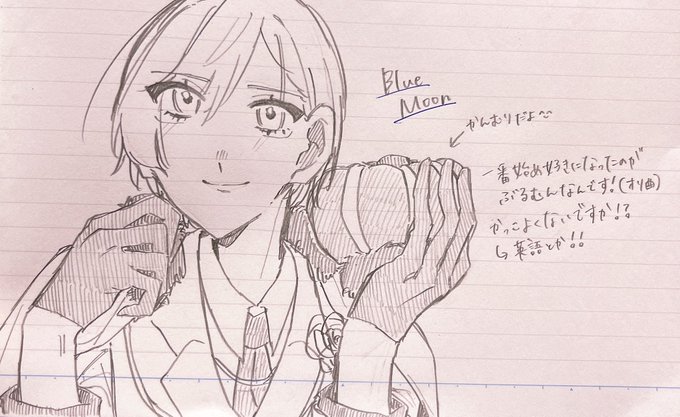 Blue
Moon
かんむりだよ^^
一番始め好きになったのが
ぶるむんなんです!(オリ曲)
かっこよくないですか!?
↳英語とか!!